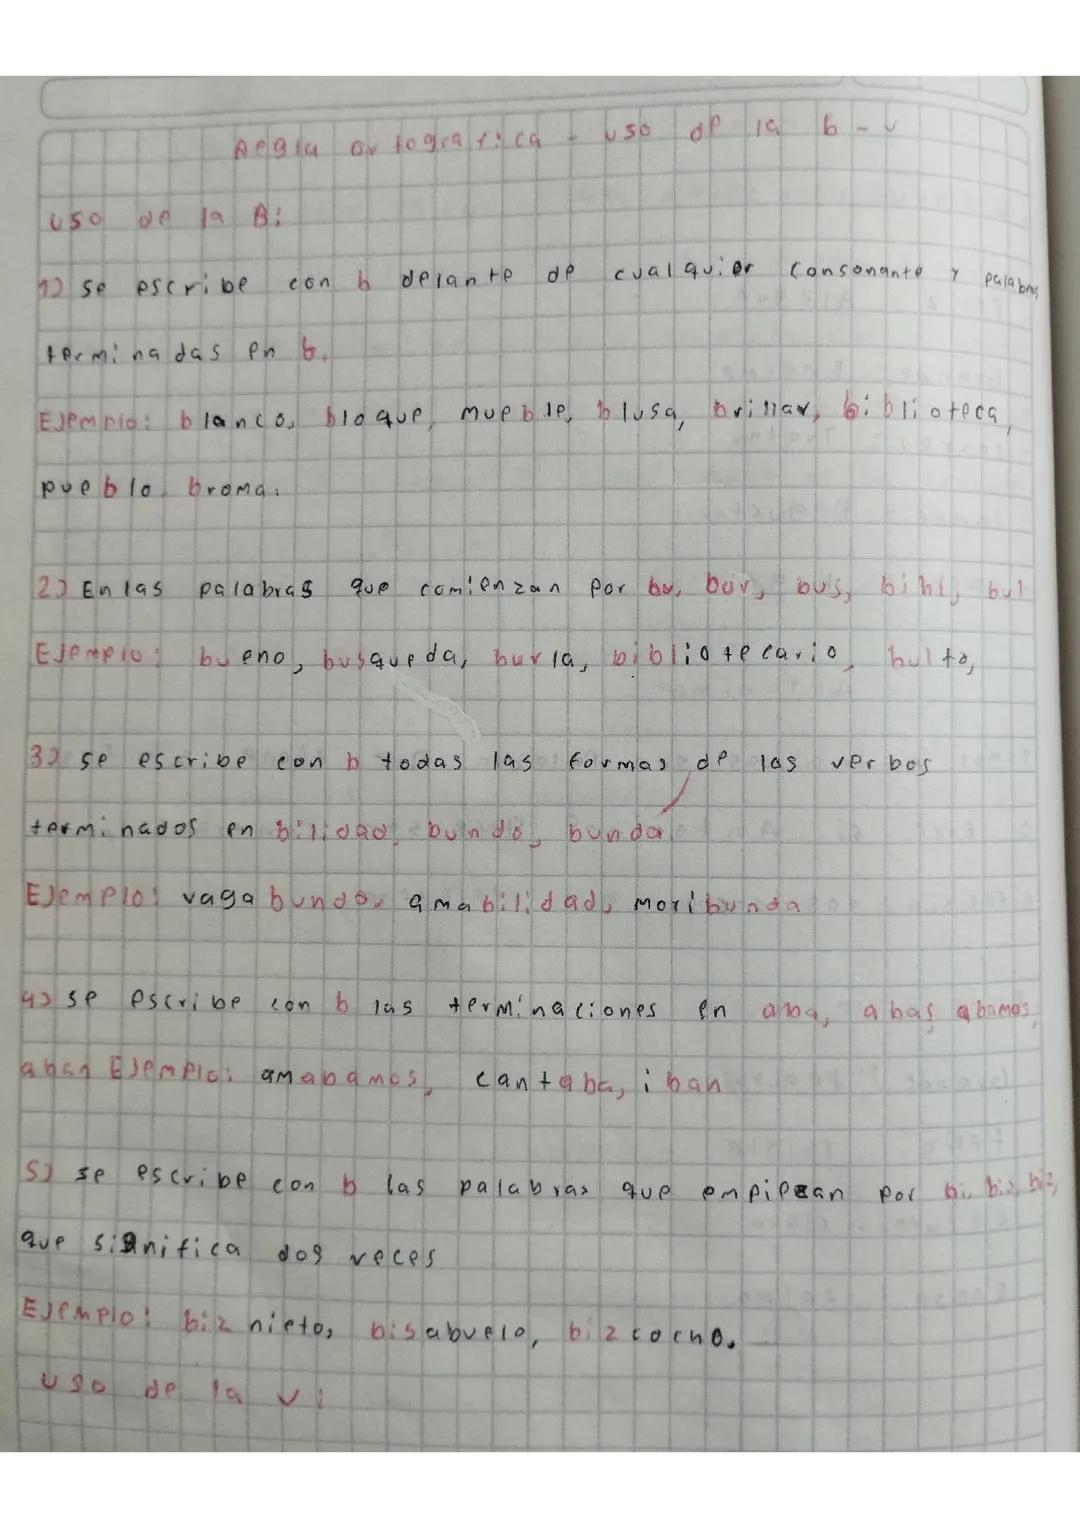 Regla ortografica - uso de la b - v
uso de la B:
1) se escribe con b delante de cualquier consonante y palabras
terminadas en b.
Ejemplo: blanco, bloque, mueble, blusa, brillar, biblioteca,
pueblo, broma.
2) En las palabras que comienzan por bu, bur, bus, bibl, bul
Ejemplo: bueno, busqueda, burla, bibliotecario, bulto,
3) se escribe con b todas las formas de los verbos
terminados en bilidad, bundo, bunda
Ejemplo: vagabundo, amabilidad, moribunda
4) se escribe con b las terminaciones en aba, abas, abamos,
aban Ejemplo: amabamos, cantaba, iban
5) se escribe con b las palabras que empiezan por bi, bis, biz,
que significa dos veces
Ejemplo: biznieto, bisabuelo, bizcocho.
uso de la v: